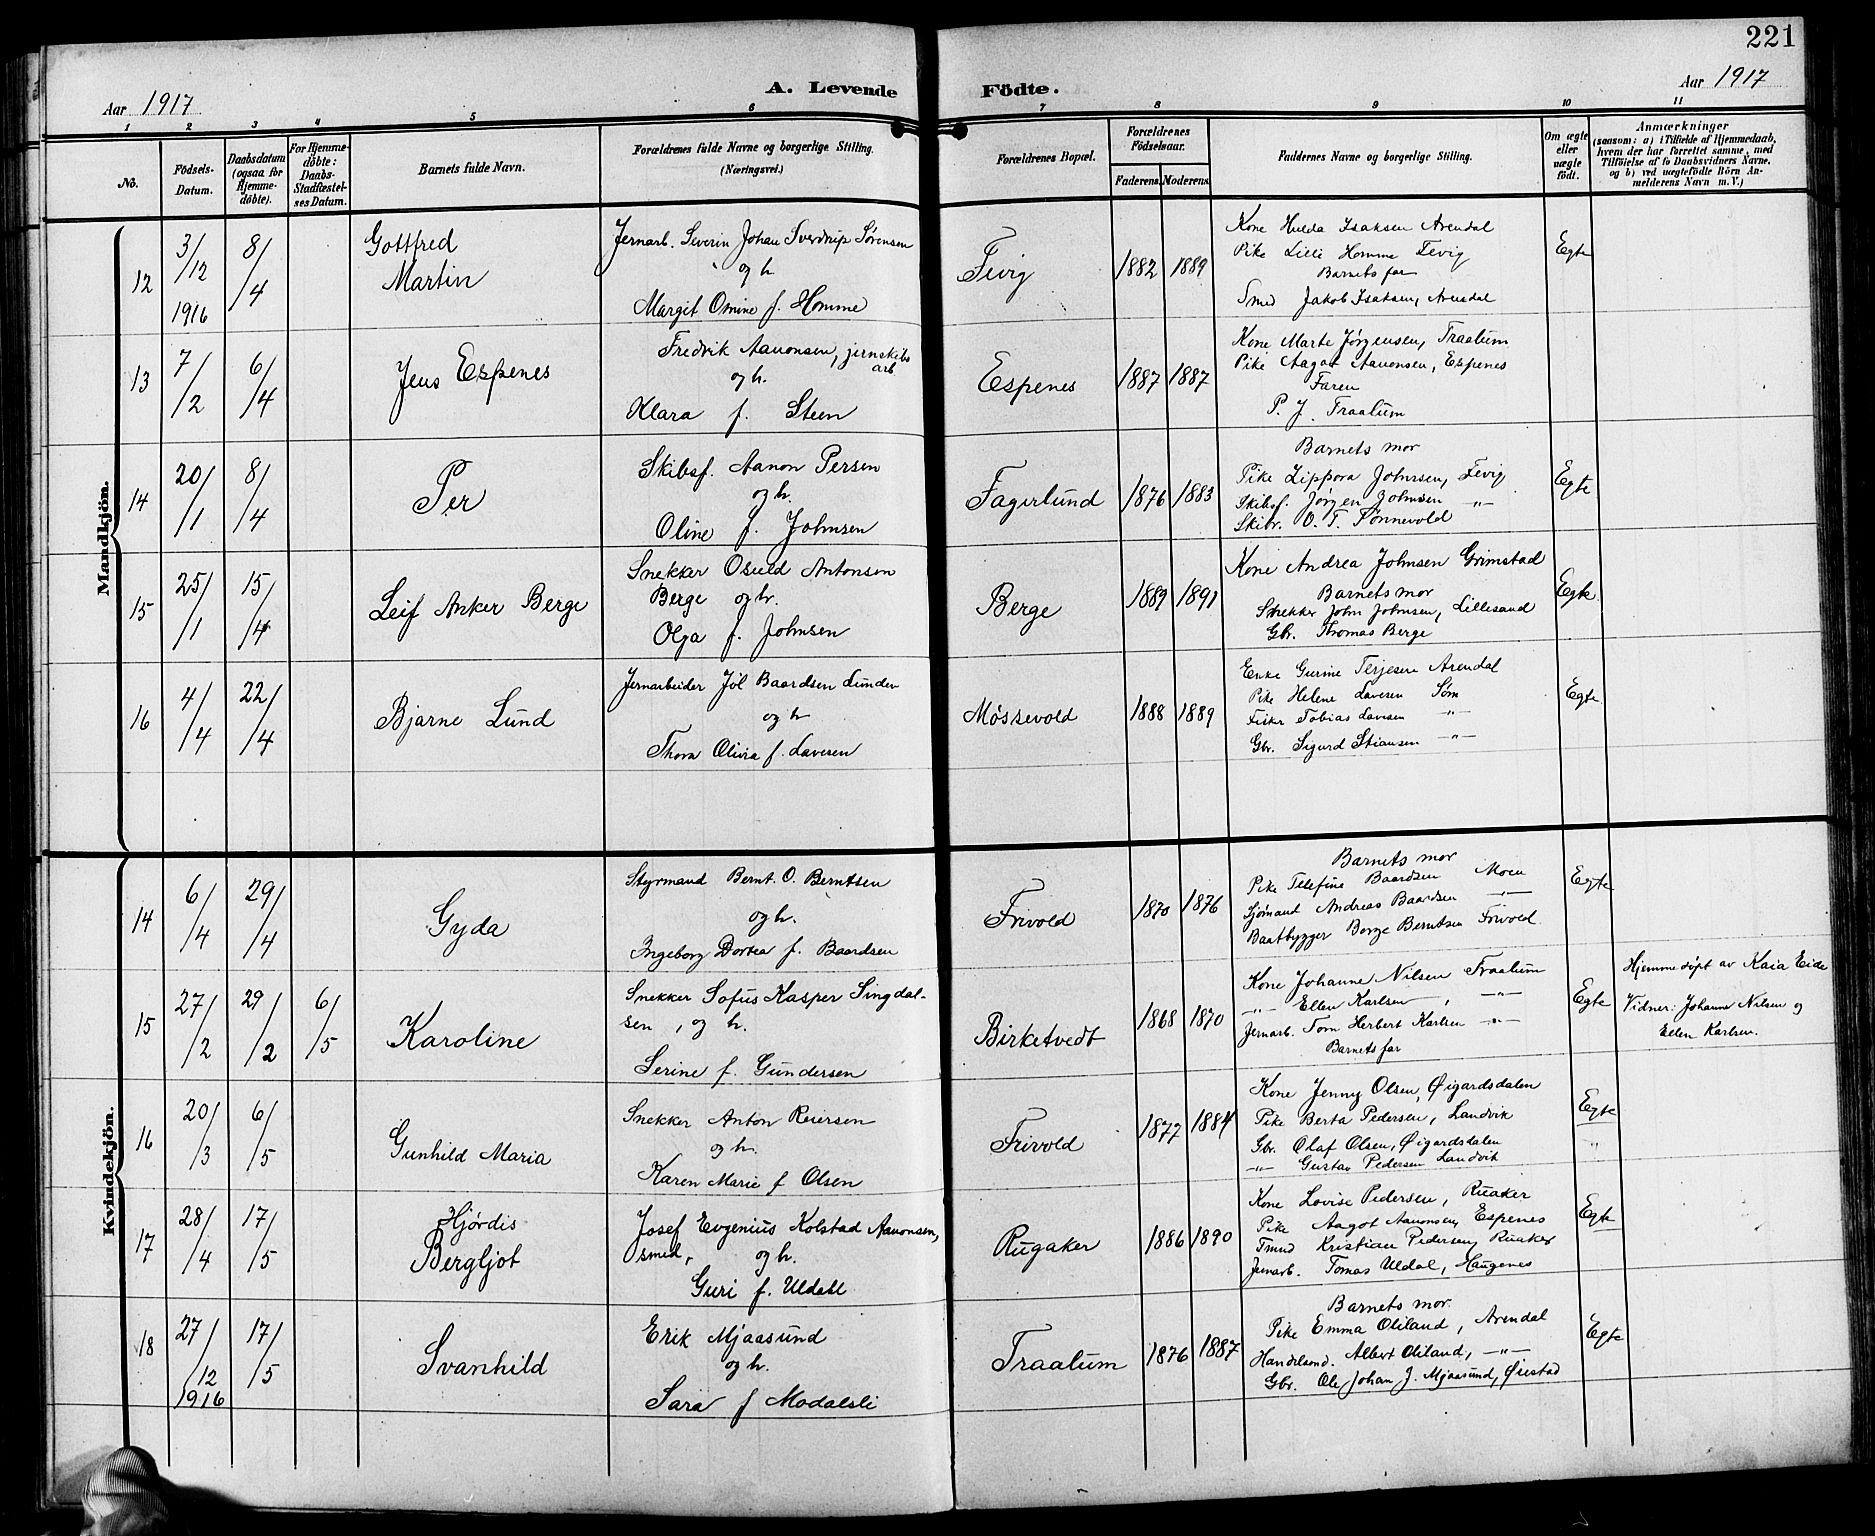 221
Aar 1917
A. Levende
Födte.
Aar 1917
1 2 3 4 5 6 7 8 9 10 11
No.
Födsels-
Datum.
Daabsdatum
(ogsaa for
Hjemme-
döbte).
For Hjemme-
döbte:
Daabs-
Stadfæstel-
ses Datum.
Barnets fulde Navn.
Forældrenes fulde Navne og borgerlige Stilling.
(Næringsvei.)
Forældrenes Bopæl.
Forældrenes
Födselsaar.
Faderens.
Moderens.
Faddernes Navne og borgerlige Stilling.
Om ægte
eller
uægte
födt.
Anmærkninger
(saasom: a) i Tilfælde af Hjemmedaab,
hvem der har forrettet samme, med
Tilföielse af to Daabsvidners Navne,
og b) ved uægtefödte Börn An-
melderens Navn m. V.)
Mandkjön.
12
3/12
1916
8/4
Gottfred
Martin
Jernarb. Severin Johan Sverdrup Sørensen
og h
Margit Omine f. Homme
Fevig
1882 1889
Kone Hulda Isaksen Arendal
Pike Lilli Homme Fevig
Barnets far
Smed Jakob Isaksen, Arendal
Egte
13
7/2
6/4
Jens Espenes
Fredrik Aanonsen, jernskibs
arb
og h.
Klara f. Steen
Espenes
1887 1887
Kone Marte Jørgensen, Traalum
Pike Aagot Aanonsen, Espenes
Faren
P. J. Traalum
14
20/1
8/4
Per
Skibsf. Aanon Persen
og h.
Oline f. Johnsen
Fagerlund
1876 1883
Barnets mor
Pike Zippora Johnsen, Fevig
Skibsf. Jørgen Johnsen -"-
Skibr. O. T. Tønnevold
Egte
15
25/1
15/4
Leif Anker Berge
Snekker Osuld Antonsen
Berge og h.
Olga f. Johnsen
Berge
1889 1891
Kone Andrea Johnsen Grimstad
Barnets mor
Snekker John Johnsen, Lillesand
Gbr. Thomas Berge
Egte.
16
4/4
22/4
Bjarne Lund
Jernarbeider Jøl Baardsen Lunden
og h
Thora Olivia f. Lavesen
Møssevold
1888 1889
Enke Gurine Terjesen Arendal
Pike Helene Lavesen Søm
Fisker Tobias Lavesen -"-
Gbr. Sigurd Stiansen -"-
Egte
Kvindekjön.
14
6/4
29/4
Gyda
Styrmand Bernt. O. Berntsen
og h.
Ingeborg Dortea f. Baardsen
Frivold
1870 1876
Barnets mor
Pike Telefine Baardsen Moen
Sjømand Andreas Baardsen -"-
Baatbygger Borge Berntsen Frivold
Egte
15
27/2
29/2
6/5
Karoline
Snekker Sofus Kasper Singdal-
sen, og h.
Serine f. Gundersen
Birketvedt
1868 1870
Kone Johanne Nilsen Traalum
-"- Ellen Karlsen, -"-
Jernarb. Tom Herbert Karlsen -"-
Barnets far
Egte
Hjemmedøpt av Kaia Eide
Vidner: Johanne Nilsen og
Ellen Karlsen.
16
20/3
6/5
Gunhild Maria
Snekker Anton Reiersen
og h.
Karen Marie f Olsen
Frivold
1877 1884
Kone Jenny Olsen, Øigardsdalen
Pike Berta Pedersen, Landvik
Gbr. Olaf Olsen, Øigardsdalen
-"- Gustav Pedersen Landvik
Egte
"
17
28/4
17/5
Hjørdis
Bergljot
Josef Evgenius Kolstad Aanonsen,
smed, og h.
Guri f. Uldal
Rugaker
1886 1890
Kone Lovise Pedersen, Ruaker
Pike Aagot Aanonsen, Espenes
Smed Kristian Pedersen, Ruaker
Jernarb. Tomas Uldal, Haugenes
Egte
18
27/12
1916
17/5
Svanhild
Erik Mjaasund
og h.
Sara f Modalsli
Traalum
1876 1887
Barnets mor.
Pike Emma Oliland, Arendal
Handelsmd. Albert Oliland, -"-
Gbr. Ole Johan J. Mjaasund, Øiestad
Egte